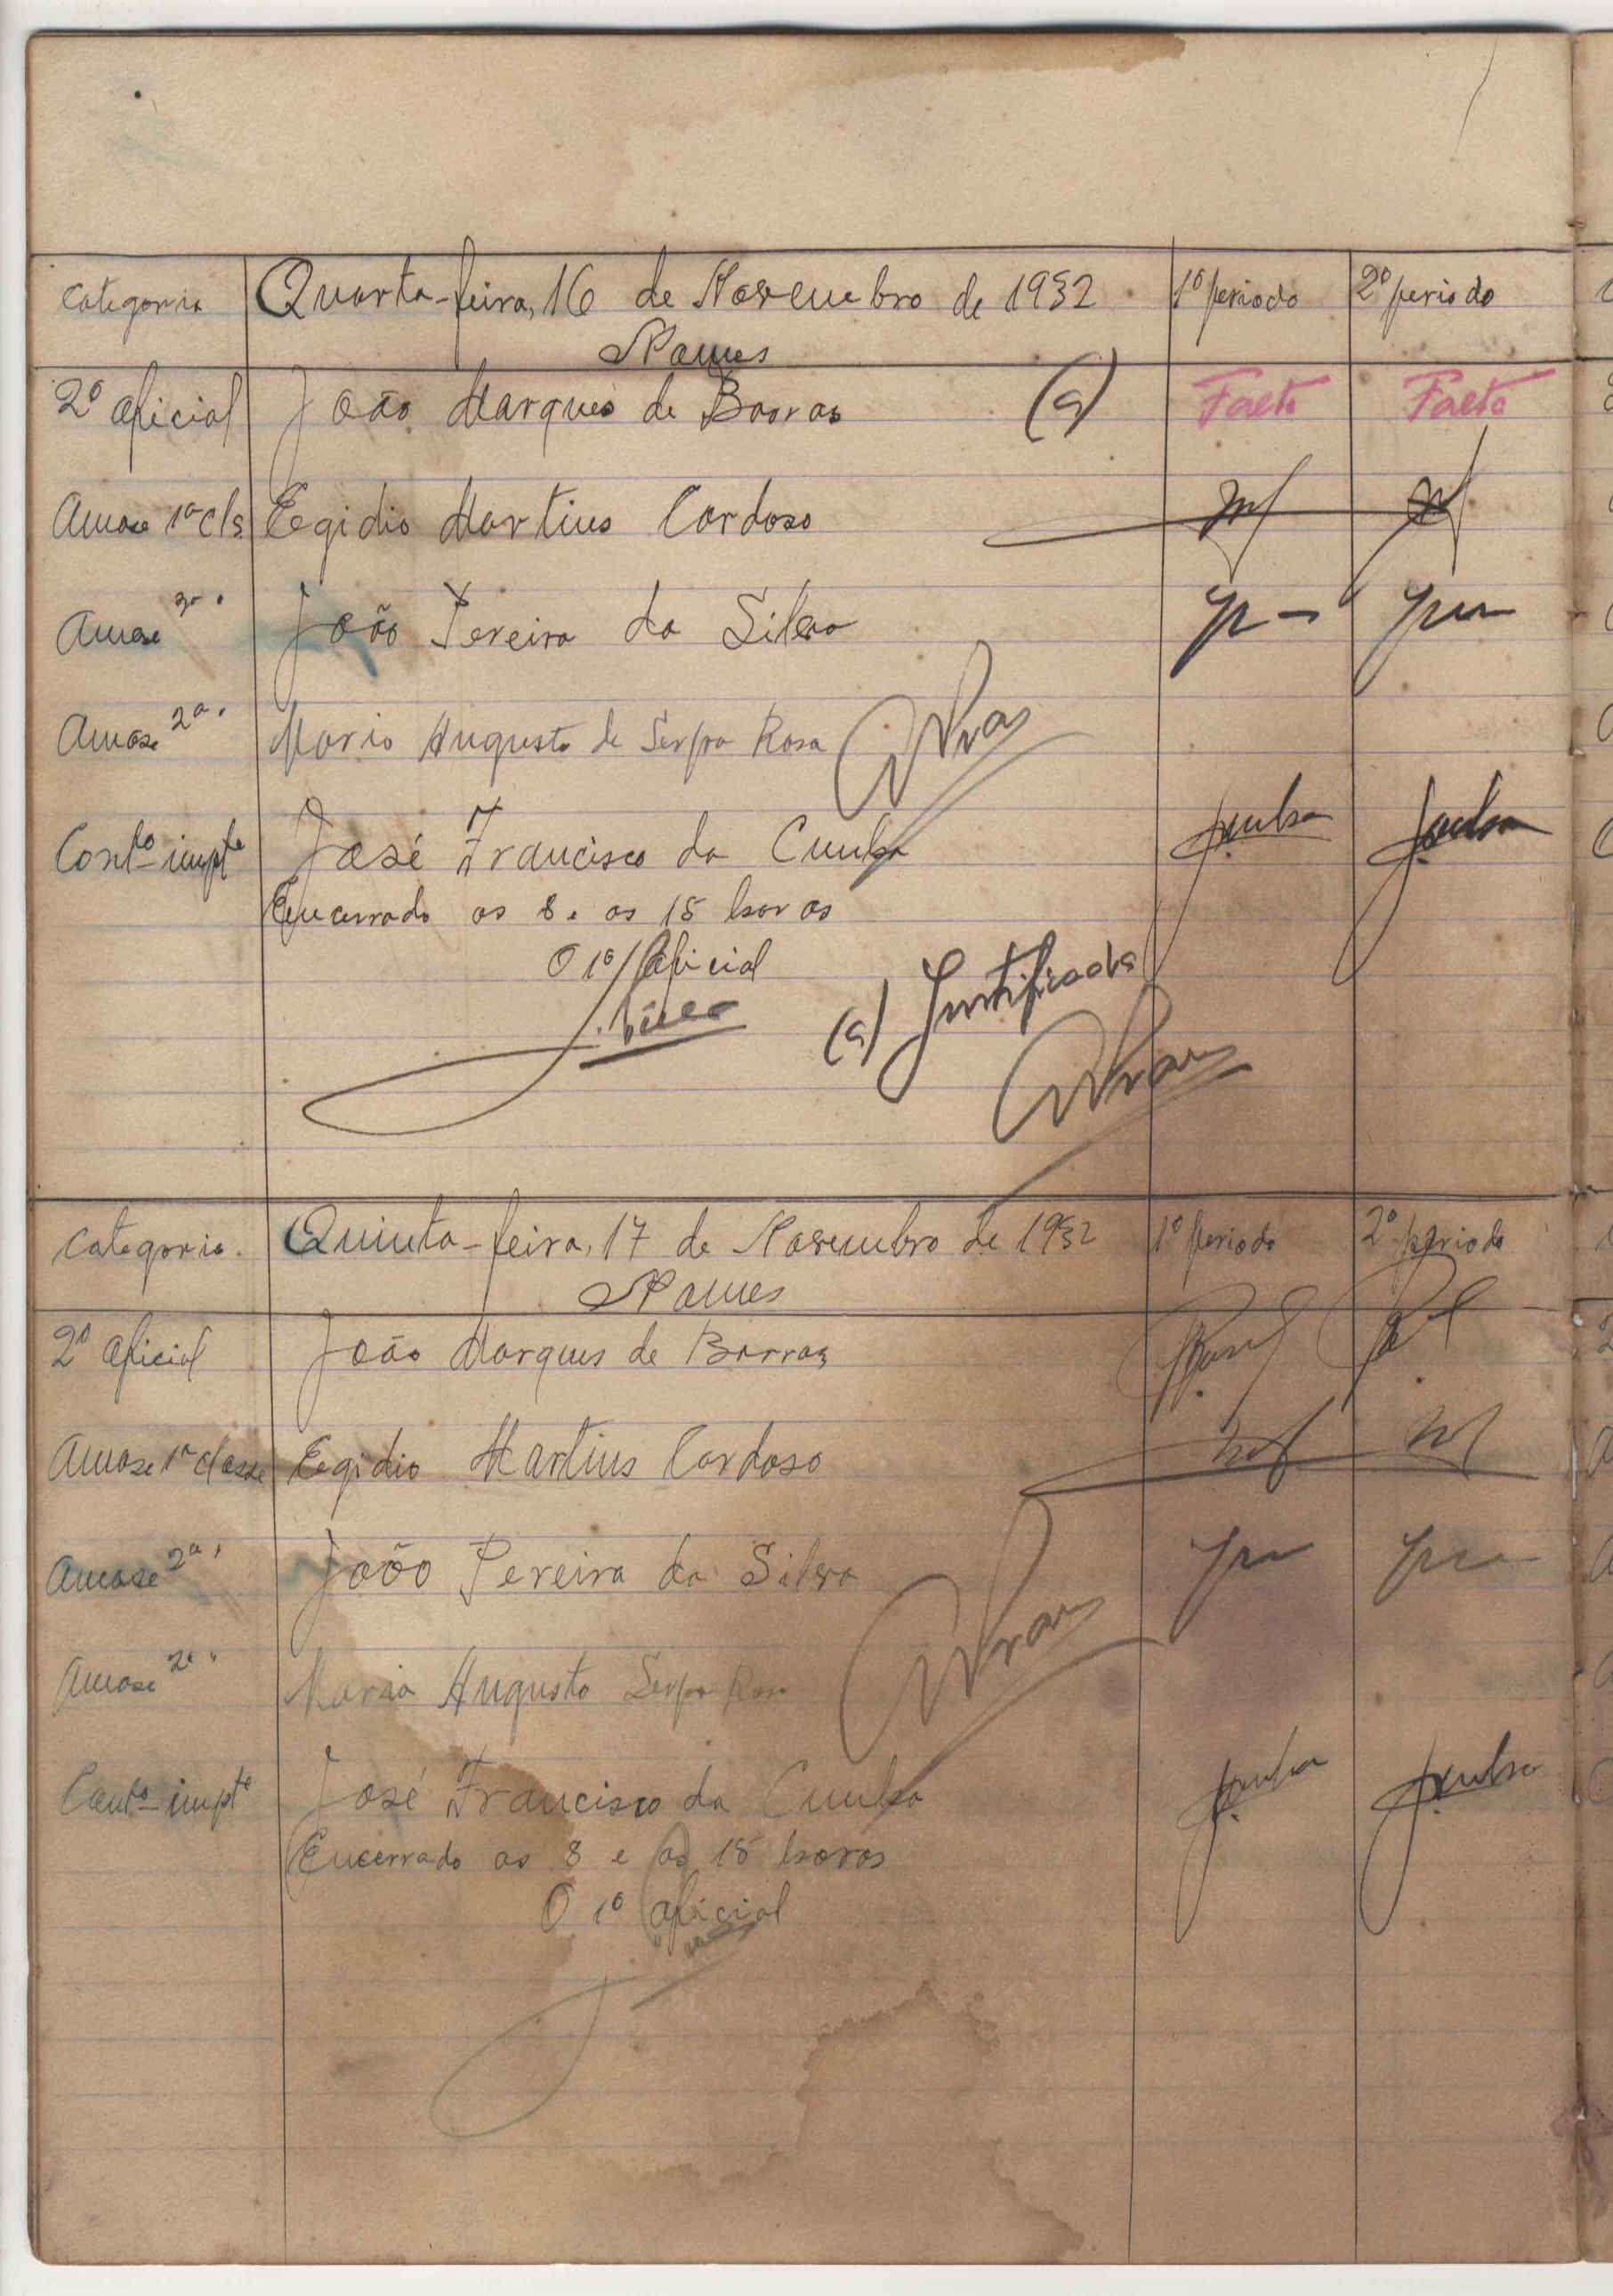 Categoria Quarta-feira, 16 de Novembro de 1932 1º periodo 2º periodo
Nomes
2º oficial João Marques de Barros (a) Falto Falto
Amase 1ª cls Egidio Martins Cardoso
Amase 2ª " João Pereira da Silva
Amase 2ª " Mario Augusto de Serpa Rosa
Contº impte José Francisco da Cunha JCunha JCunha
Encerrado as 8 e as 15 horas
O 1º oficial
(a) Justificada
Categoria Quinta-feira, 17 de Novembro de 1932 1º periodo 2º periodo
Nomes
2º oficial João Marques de Barros
Amase 1ª classe Egidio Martins Cardoso
Amase 2ª " João Pereira da Silva
Amase 2ª " Mario Augusto Serpa Rosa
Contº impte José Francisco da Cunha JCunha JCunha
Encerrado as 8 e as 15 horas
O 1º oficial